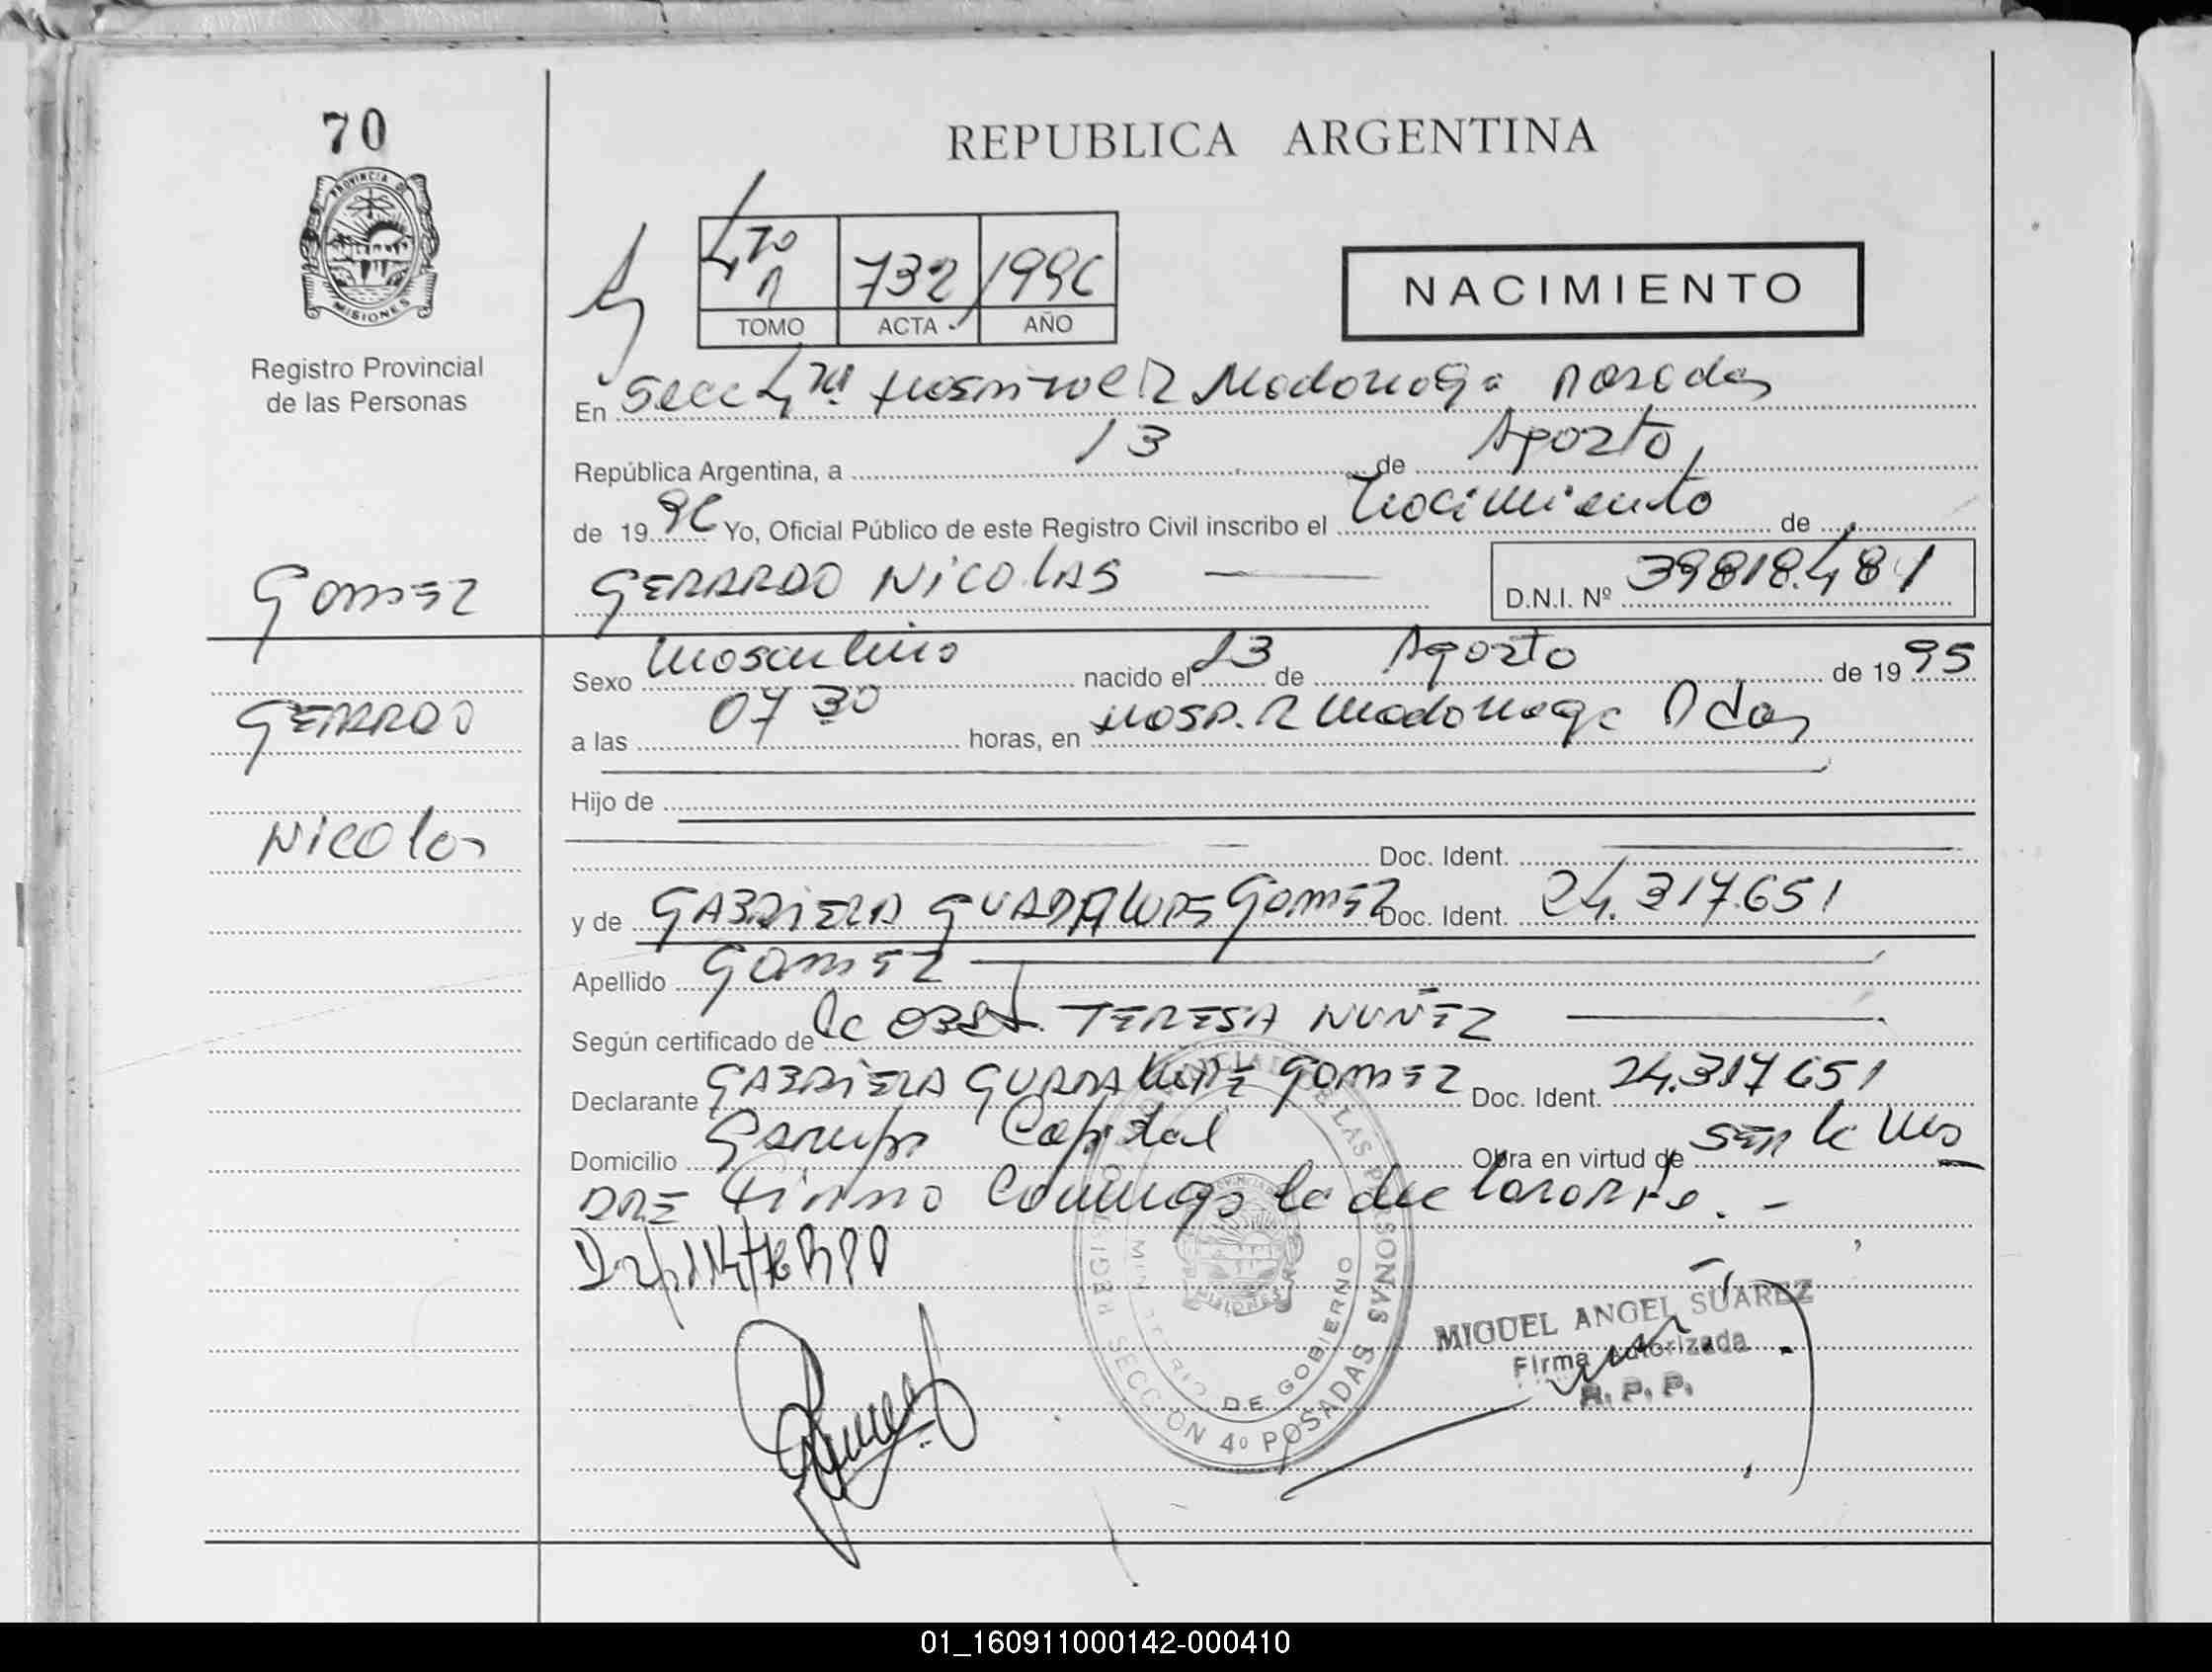 70
REPUBLICA ARGENTINA
PROVINCIA DE
MISIONES
Registro Provincial
de las Personas
4 to 732 1996
TOMO ACTA AÑO
NACIMIENTO
En Secc 4 ta Hospital R Madariaga Posadas
República Argentina, a 13 de Agosto
de 19 96 Yo, Oficial Público de este Registro Civil inscribo el nacimiento de
GERARDO NICOLAS D.N.I. Nº 39818.481
GOMEZ
GERARDO
Nicolas
Sexo masculino nacido el 23 de Agosto de 19 95
a las 07 30 horas, en Hosp. R Madariaga Pdas
Hijo de
Doc. Ident.
y de GABRIELA GUADALUPE GOMEZ Doc. Ident. 24.317.651
Apellido GOMEZ
Según certificado de la OBST. TERESA NUÑEZ
Declarante GABRIELA GUADALUPE GOMEZ Doc. Ident. 24.317651
Domicilio Garupa Capital Obra en virtud de SER la MA
DRE Firma Conmigo la declarante.-
MIGUEL ANGEL SUAREZ
Firma Autorizada
R. P. P.
DE LAS PERSONAS
SECCION 4º POSADAS
MINISTERIO DE GOBIERNO
MISIONES
01_160911000142-000410